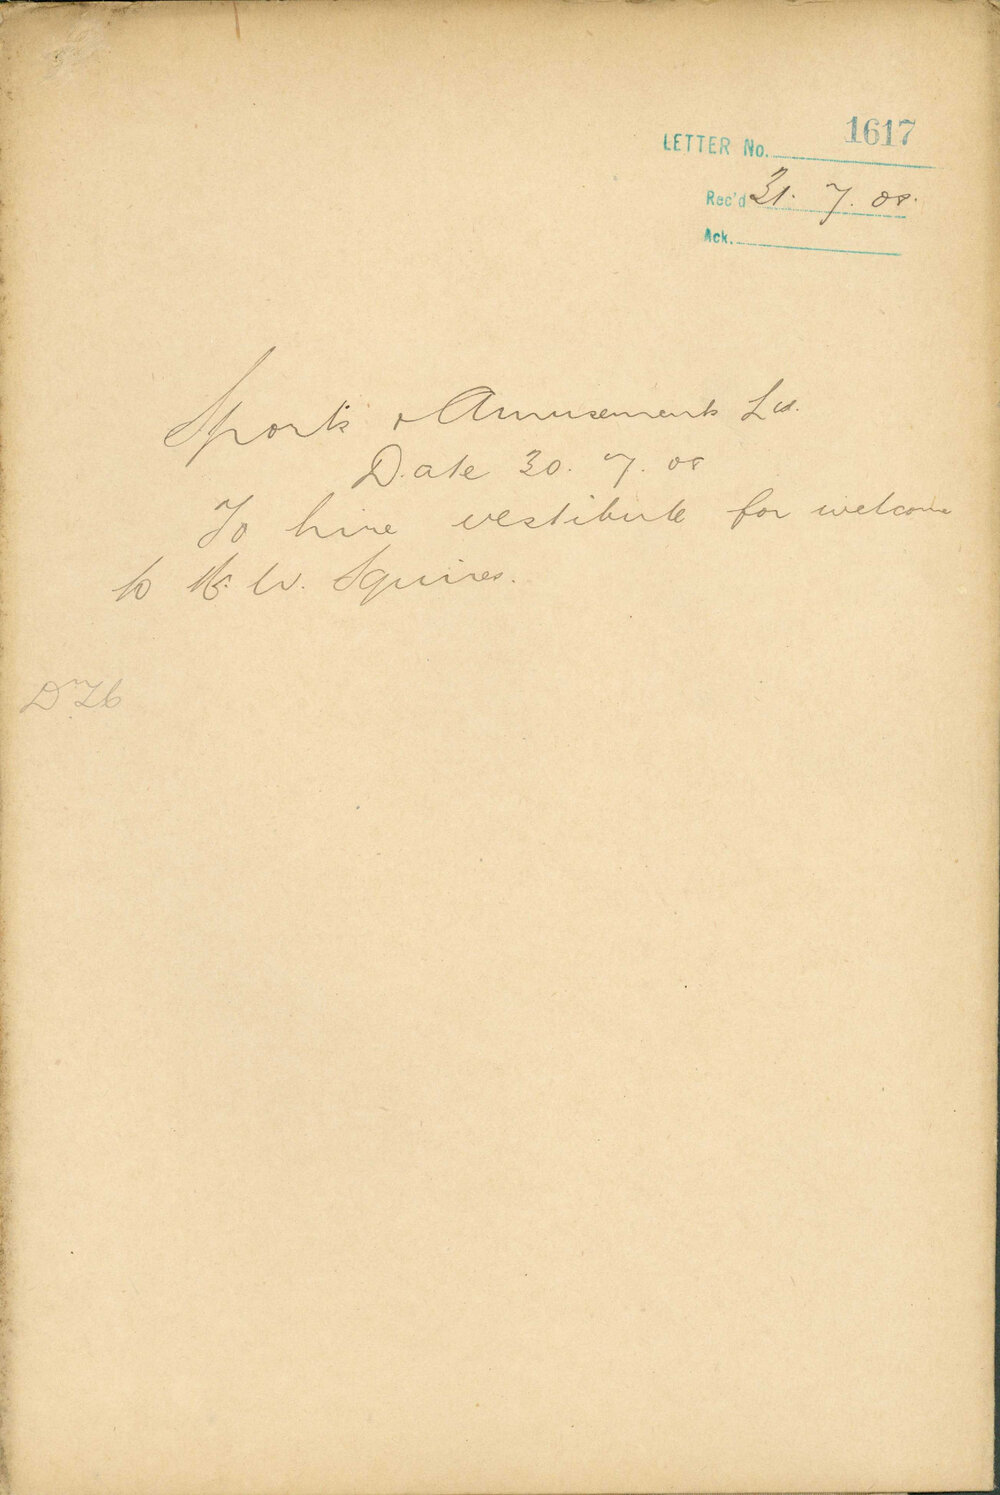 LETTER No. 1617
Rec'd 31. 7. 08.
Ack.
Sports & Amusements Ltd.
Date 30. 7. 08
To hire vestibule for welcome
to Mr W. Squires.